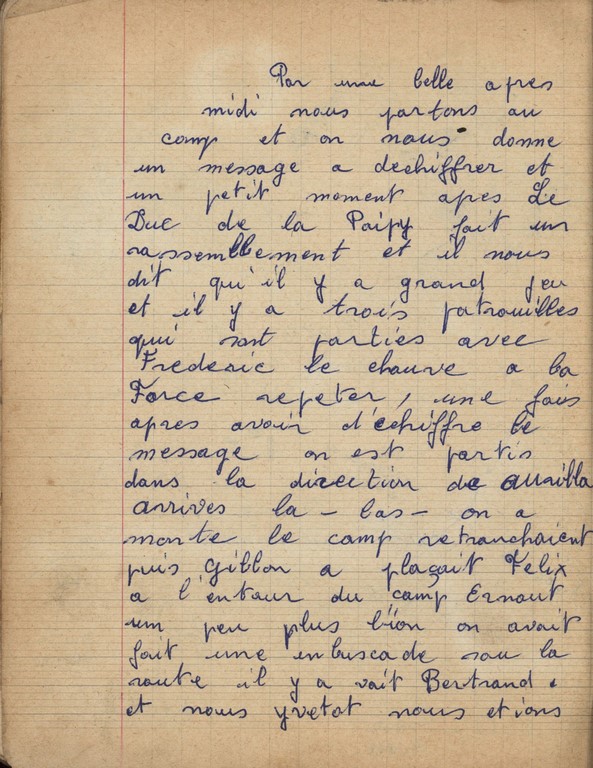 Par une belle apres
midi nous partons au
camp et on nous donne
un message a dechiffrer et
un petit moment apres Le
Duc de la Paipy fait un
rassemblement et il nous
dit qu'il y a grand jeu
et il y a trois patrouilles
qui sont parties avec
Frederic le chauve a la
Force repeter, une fois
apres avoir déchiffre le
message on est partis
dans la direction de
arrives la-bas- on a
monte le camp retranchaient
puis Gibbon a plaçait Felix
a l'entour du camp Ernout
un peu plus on avait
fait une enbuscade sou la
route il y a vait Bertrand.
et nous yvetot nous etions